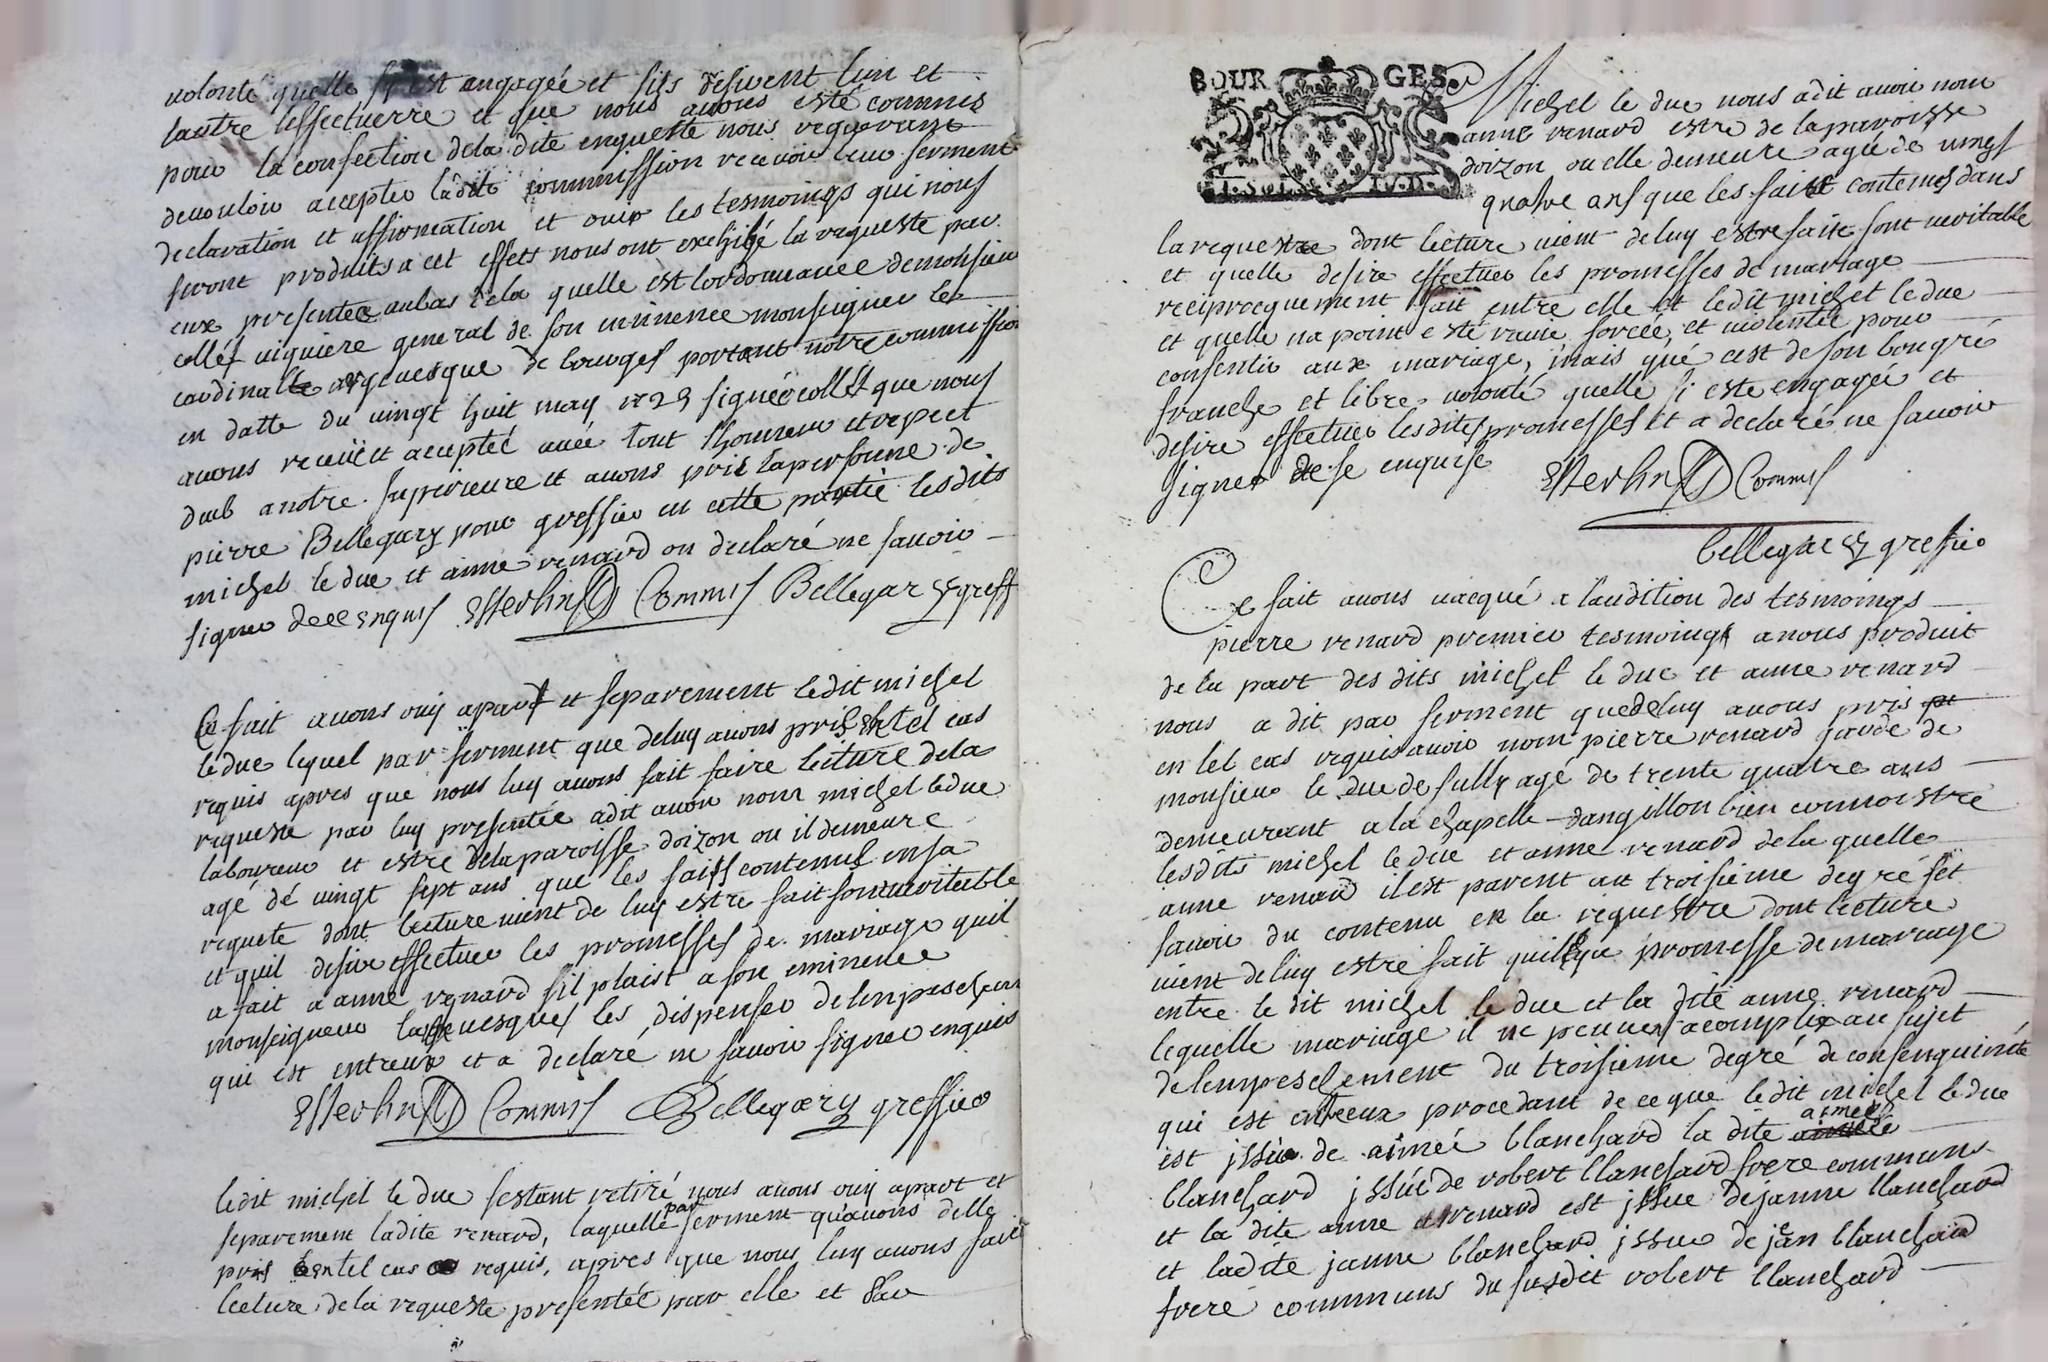 volonté quelle sy est engagée et sils desirent lun et
lautre leffectuerre et que nous auons esté commis
pour la confection dela dite enqueste nous requerant
deuouloir accepter ladite commission receuoir leur serment
declaration et affirmation et ouir les tesmoings qui nous
seront produits a cet effets nous ont exchibé la requeste par
eux presentée aubas dela quelle est lordonnance demonsieur
collet uiguiere general de son eminence monseigneur le
cardinalle arqeuesque de bourges portant notre commission
en datte du uingt huit may 1723 signée collet que nous
auons receüe et accepté auec tout lhonneur et respect
dueb a notre superieure et auons pris la personne de
pierre Bellegary pour greffier en cette partie lesdits
michel le duc et anne renard on declaré ne sauoir
signer de ce enquis Esterlin Commis Bellegary greff
Ce fait auons ouy apart et separement ledit michel
le duc lequel par serment que deluy auons pris en tel cas
requis apres que nous luy auons fait faire lecture dela
requeste par luy presentée adit auoir nom michel leduc
laboureur et estre dela paroisse doizon ou il demeure
agé de uingt sept ans que les faits contenus en sa
requete dont lecture uient de luy estre fait sont ueritable
et quil desire effectuer les promesses de mariage quil
a fait a anne renard sil plaist a son eminence
monseigneur larqeuesques les dispenser de lenpeschem
qui est entreux et a declaré ne sauoir signer enquis
Esterlin Commis Bellegary greffier
ledit michel le duc sestant retiré nous auons ouy apart et
separement ladite renard, laquelle par serment quauons delle
pris en tel cas requis, apres que nous luy auons faire
lecture dela requeste presentée par elle et par
BOURGES
Michel le duc nous adit auoir nom
anne renard estre de la paroisse
doizon ou elle demeure agée de uingt
quatre ans que les fait contenus dans
la requestre dont lecture uient de luy estre faite sont ueritable
et quelle desire effectuer les promesses de mariage
reciprocquement fait entre elle et ledit michel le duc
et quelle na point esté rauie forcée, et uiolentée pour
consentir aux mariage, mais que cest de son bongré
franche et libre uolonté quelle si este engagée et
desire effectuer lesdites promesses et a declaré ne sauoir
signer de se enquise Esterlin Commis
Bellegary greffier
Ce fait auons uacqué a laudition des tesmoings
pierre renard premier tesmoingt anous produit
de la part des dits michel le duc et anne renard
nous a dit par serment que de luy auons pris
en tel cas requis auoir nom pierre renard garde de
monsieur le duc de sully agé de trente quatre ans
demeurant a la chapelle dangillon bien connoistre
lesdits michel le duc et anne renard dela quelle
anne renard il est parent au troisieme degré set
sauoir du contenu en la requestre dont lecture
uient de luy estre fait quil y a promesse de mariage
entre le dit michel le duc et la dite anne renard
lequelle mariage il ne peuuent acomplir au sujet
de lempeschement du troisieme degré de consenguinité
qui est entreux procedant de ce que le dit michel le duc
est issu de aimée blanchard la dite aimée
blanchard issüe de robert blanchard frere communs
et la dite anne renard est issue de janne blanchard
et ladite janne blanchard issue de jean blanchard
frere communs du susdit robert blanchard